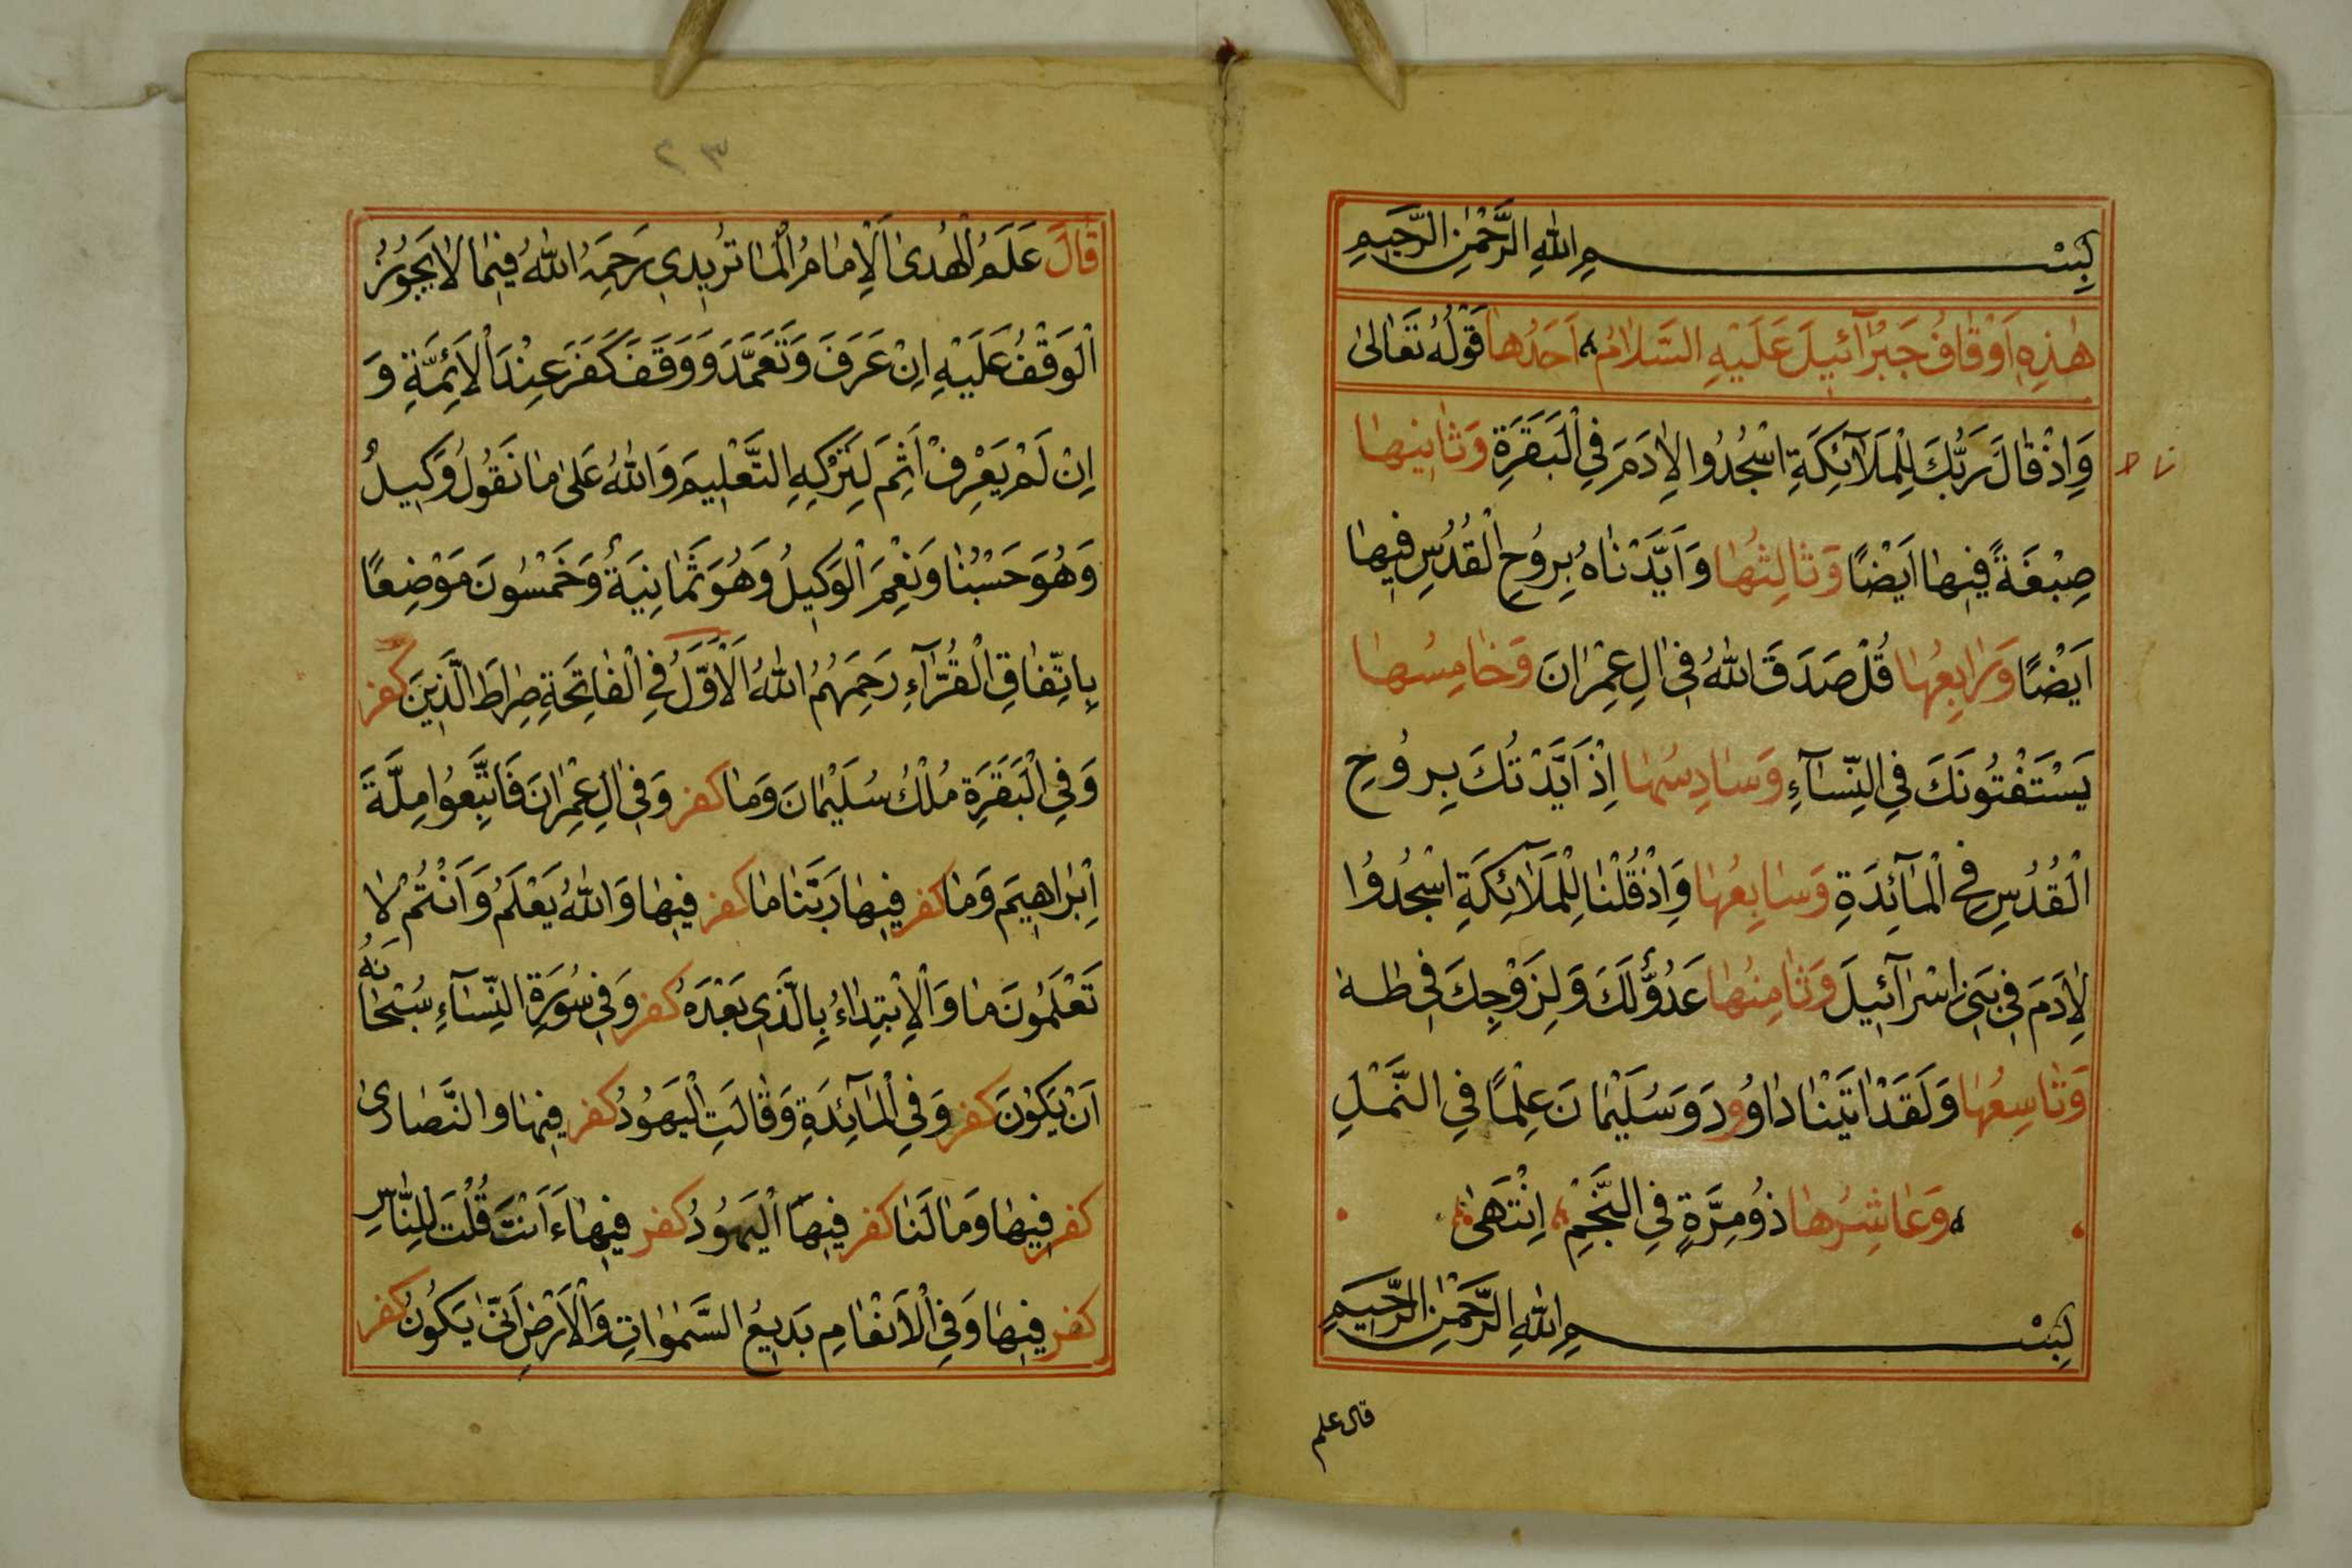 بِسْمِ اللهِ الرَّحْمٰنِ الرَّحِيمِ
هٰذِهِ اَوْقَافُ جَبْرَآئِيلَ عَلَيْهِ السَّلَامُ اَحَدُهَا قَوْلُهُ تَعَالىٰ
وَاِذْ قَالَ رَبُّكَ لِلْمَلَآئِكَةِ اسْجُدُوا لِاٰدَمَ فِي الْبَقَرَةِ وَثَانِيهَا
صِبْغَةً فِيهَا اَيْضًا وَثَالِثُهَا وَاَيَّدْنَاهُ بِرُوحِ الْقُدُسِ فِيهَا
اَيْضًا وَرَابِعُهَا قُلْ صَدَقَ اللهُ فِي اٰلِ عِمْرَانَ وَخَامِسُهَا
يَسْتَفْتُونَكَ فِي النِّسَآءِ وَسَادِسُهَا اِذْ اَيَّدْتُكَ بِرُوحِ
الْقُدُسِ فِي الْمَآئِدَةِ وَسَابِعُهَا وَاِذْ قُلْنَا لِلْمَلَآئِكَةِ اسْجُدُوا
لِاٰدَمَ فِي بَنِي اِسْرَآئِيلَ وَثَامِنُهَا عَدُوٌّ لَكَ وَلِزَوْجِكَ فِي طٰهٰ
وَتَاسِعُهَا وَلَقَدْ اٰتَيْنَا دَاوُودَ وَسُلَيْمَانَ عِلْمًا فِي النَّمْلِ
وَعَاشِرُهَا ذُو مِرَّةٍ فِي النَّجْمِ اِنْتَهَىٰ
بِسْمِ اللهِ الرَّحْمٰنِ الرَّحِيمِ
قال علم
٣٢
قَالَ عَلَمُ الْهُدىٰ اَلْاِمَامُ الْمَاتُرِيدِي رَحِمَهُ اللهُ فِيمَا لَا يَجُوزُ
الْوَقْفُ عَلَيْهِ اِنْ عَرَفَ وَتَعَمَّدَ وَوَقَفَ كَفَرَ عِنْدَ الْاَئِمَّةِ وَ
اِنْ لَمْ يَعْرِفْ اَثِمَ لِتَرْكِهِ التَّعْلِيمَ وَاللهُ عَلىٰ مَا نَقُولُ وَكِيلٌ
وَهُوَ حَسْبُنَا وَنِعْمَ الْوَكِيلُ وَهُوَ ثَمَانِيَةٌ وَخَمْسُونَ مَوْضِعًا
بِاتِّفَاقِ الْقُرَّآءِ رَحِمَهُمُ اللهُ اَلْاَوَّلُ فِي الْفَاتِحَةِ صِرَاطَ الَّذِينَ كفر
وَفِي الْبَقَرَةِ مُلْكُ سُلَيْمَانَ وَمَا كفر وَفِي اٰلِ عِمْرَانَ فَاتَّبِعُوا مِلَّةَ
اِبْرَاهِيمَ وَمَا كفر فِيهَا رَبَّنَا مَا كفر فِيهَا وَاللهُ يَعْلَمُ وَاَنْتُمْ لَا
تَعْلَمُونَ مَا وَالْاِبْتِدَاءُ بِالَّذِي بَعْدَهُ كفر وَفِي سُورَةِ النِّسَآءِ سُبْحَانَهُ
اَنْ يَكُونَ كفر وَفِي الْمَآئِدَةِ وَقَالَتِ الْيَهُودُ كفر فِيهَا وَالنَّصَارىٰ
كفر فِيهَا وَمَا لَنَا كفر فِيهَا الْيَهُودُ كفر فِيهَا ءَاَنْتَ قُلْتَ لِلنَّاسِ
كفر فِيهَا وَفِي الْاَنْعَامِ بَدِيعُ السَّمٰوَاتِ وَالْاَرْضِ اَنّىٰ يَكُونُ كفر